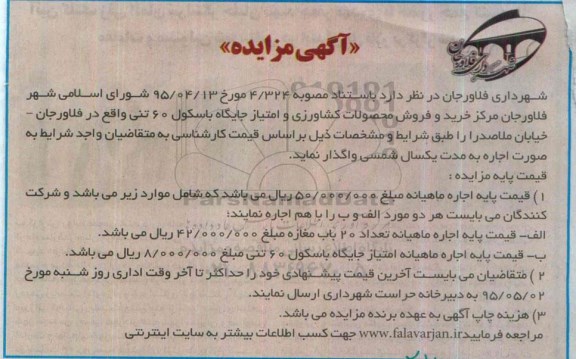 «آگهی مزایده»
شهرداری فلاورجان در نظر دارد باستناد مصوبه ۴/۳۲۴ مورخ ۹۵/۰۴/۱۳ شورای اسلامی شهر
فلاورجان مرکز خرید و فروش محصولات کشاورزی و امتیاز جایگاه باسکول ۶۰ تنی واقع در فلاورجان -
خیابان ملاصدرا را طبق شرایط و مشخصات ذیل بر اساس قیمت کارشناسی به متقاضیان واجد شرایط به
صورت اجاره به مدت یکسال شمسی واگذار نماید.
قیمت پایه مزایده :
۱) قیمت پایه اجاره ماهیانه مبلغ ۵۰/۰۰۰/۰۰۰ ریال می باشد که شامل موارد زیر می باشد و شرکت
کنندگان می بایست هر دو مورد الف و ب را با هم اجاره نمایند:
الف- قیمت پایه اجاره ماهیانه تعداد ۲۰ باب مغازه مبلغ ۴۲/۰۰۰/۰۰۰ ریال می باشد.
ب- قیمت پایه اجاره ماهیانه امتیاز جایگاه باسکول ۶۰ تنی مبلغ ۸/۰۰۰/۰۰۰ ریال می باشد.
۲) متقاضیان می بایست آخرین قیمت پیشنهادی خود را حداکثر تا آخر وقت اداری روز شنبه مورخ
۹۵/۰۵/۰۲ به دبیرخانه حراست شهرداری ارسال نمایند.
۳) هزینه چاپ آگهی به عهده برنده مزایده می باشد.
مراجعه فرمایید www.falavarjan.ir جهت کسب اطلاعات بیشتر به سایت اینترنتی